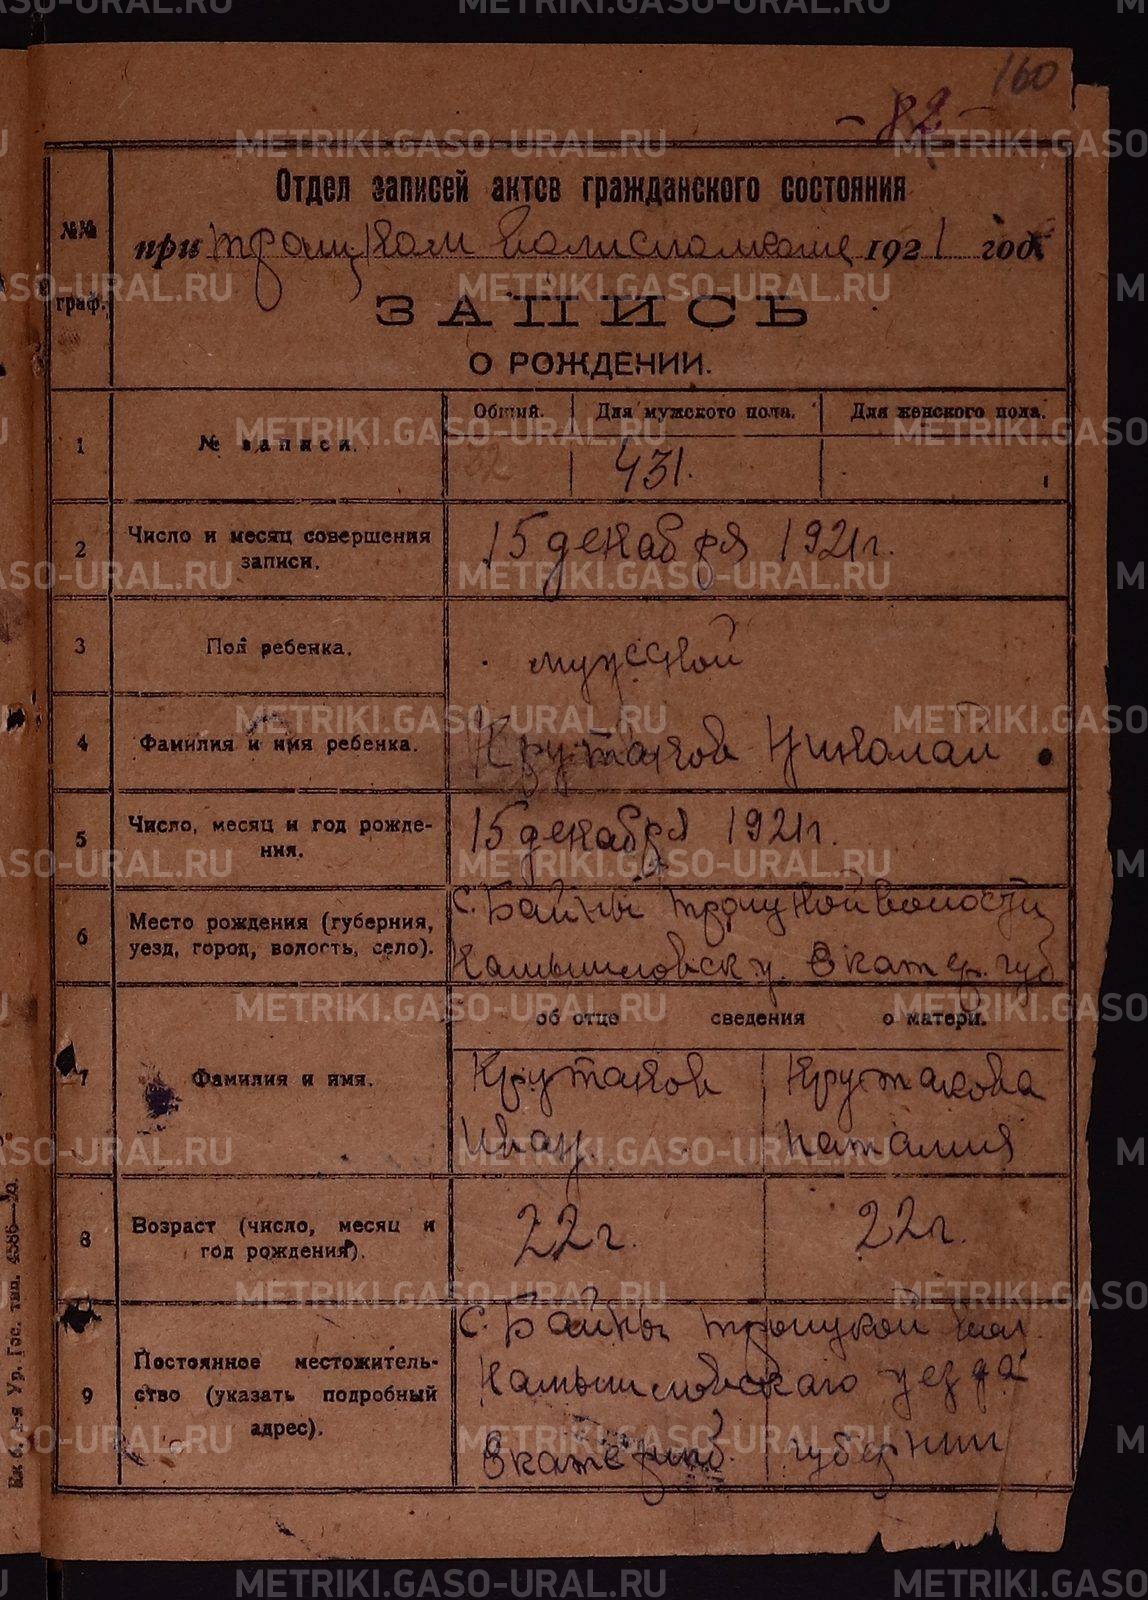 160
- 82 -
Отдел записей актов гражданского состояния
при Троицком волисполкоме 1921 года
№№ граф.
ЗАПИСЬ
О РОЖДЕНИИ.
1
№ записи.
Общий.
Для мужского пола.
431.
Для женского пола.
2
Число и месяц совершения
записи.
15 декабря 1921 г.
3
Пол ребенка.
мужской
4
Фамилия и имя ребенка.
Крутаков Николай
5
Число, месяц и год рожде-
ния.
15 декабря 1921 г.
6
Место рождения (губерния,
уезд, город, волость, село).
с. Байны Троицкой волости
Камышловск у. Екатер. губ
об отце сведения о матери.
7
Фамилия и имя.
Крутаков
Иван
Крутакова
Наталия
8
Возраст (число, месяц и
год рождения).
22 г.
22 г.
9
Постоянное местожитель-
ство (указать подробный
адрес).
с. Байны Троицкой вол.
Камышловского уезда
Екатеринб. губернии
1-я Ур. Гос. тип. 4586—20.
METRIKI.GASO-URAL.RU